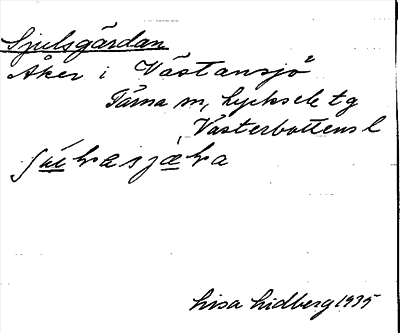 Sjulsgårdan
Åker i Västansjö
Tärna sn, Lycksele tg
Västerbottens l
Lisa Lidberg 1935